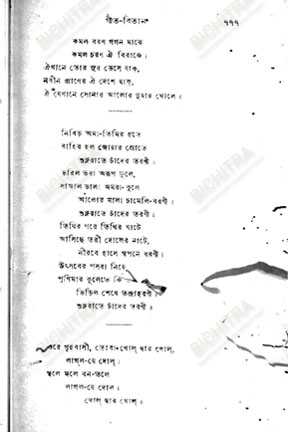 গীত-বিতান ৭৭৭
কমল বরণ গগন মাঝে
কমল চরণ ঐ বিরাজে।
ঐখানে তোর সুর ভেসে যাক্,
নবীন প্রাণের ঐ দেশে যাক্,
ঐ যেখানে সোনার আলোর দুয়ার খোলে।
নিবিড় অমা-তিমির হতে
বাহির হল জোয়ার স্রোতে
শুক্লরাতে চাঁদের তরণী।
ভরিল ভরা অরূপ ফুলে,
সাজাল ডালা অমরা-কূলে
আলোর মালা চামেলি-বরণী।
শুক্লরাতে চাঁদের তরণী।
তিথির পরে তিথির ঘাটে
আসিছে তরী দোলের নাটে,
নীরবে হাসে স্বপনে ধরণী।
উৎসবের পসরা নিয়ে
পূর্ণিমার কূলেতে কি
ভিড়িল শেষে তন্দ্রাহরণী
শুক্লরাতে চাঁদের তরণী।
ওরে গৃহবাসী, তোরা খোল্ দ্বার খোল্,
লাগল-যে দোল্।
স্থলে জলে বন-তলে
লাগল-যে দোল।
খোল্ দ্বার খোল্।
BICHITRA